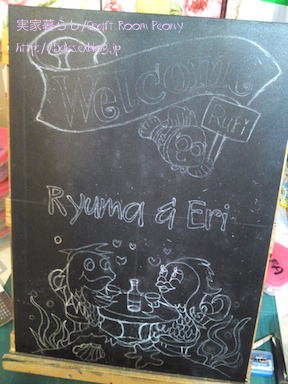 実家暮らし/Craft Room Peony
http://boks.exblog.jp
Welcome
Rufi
Ryuma & Eri